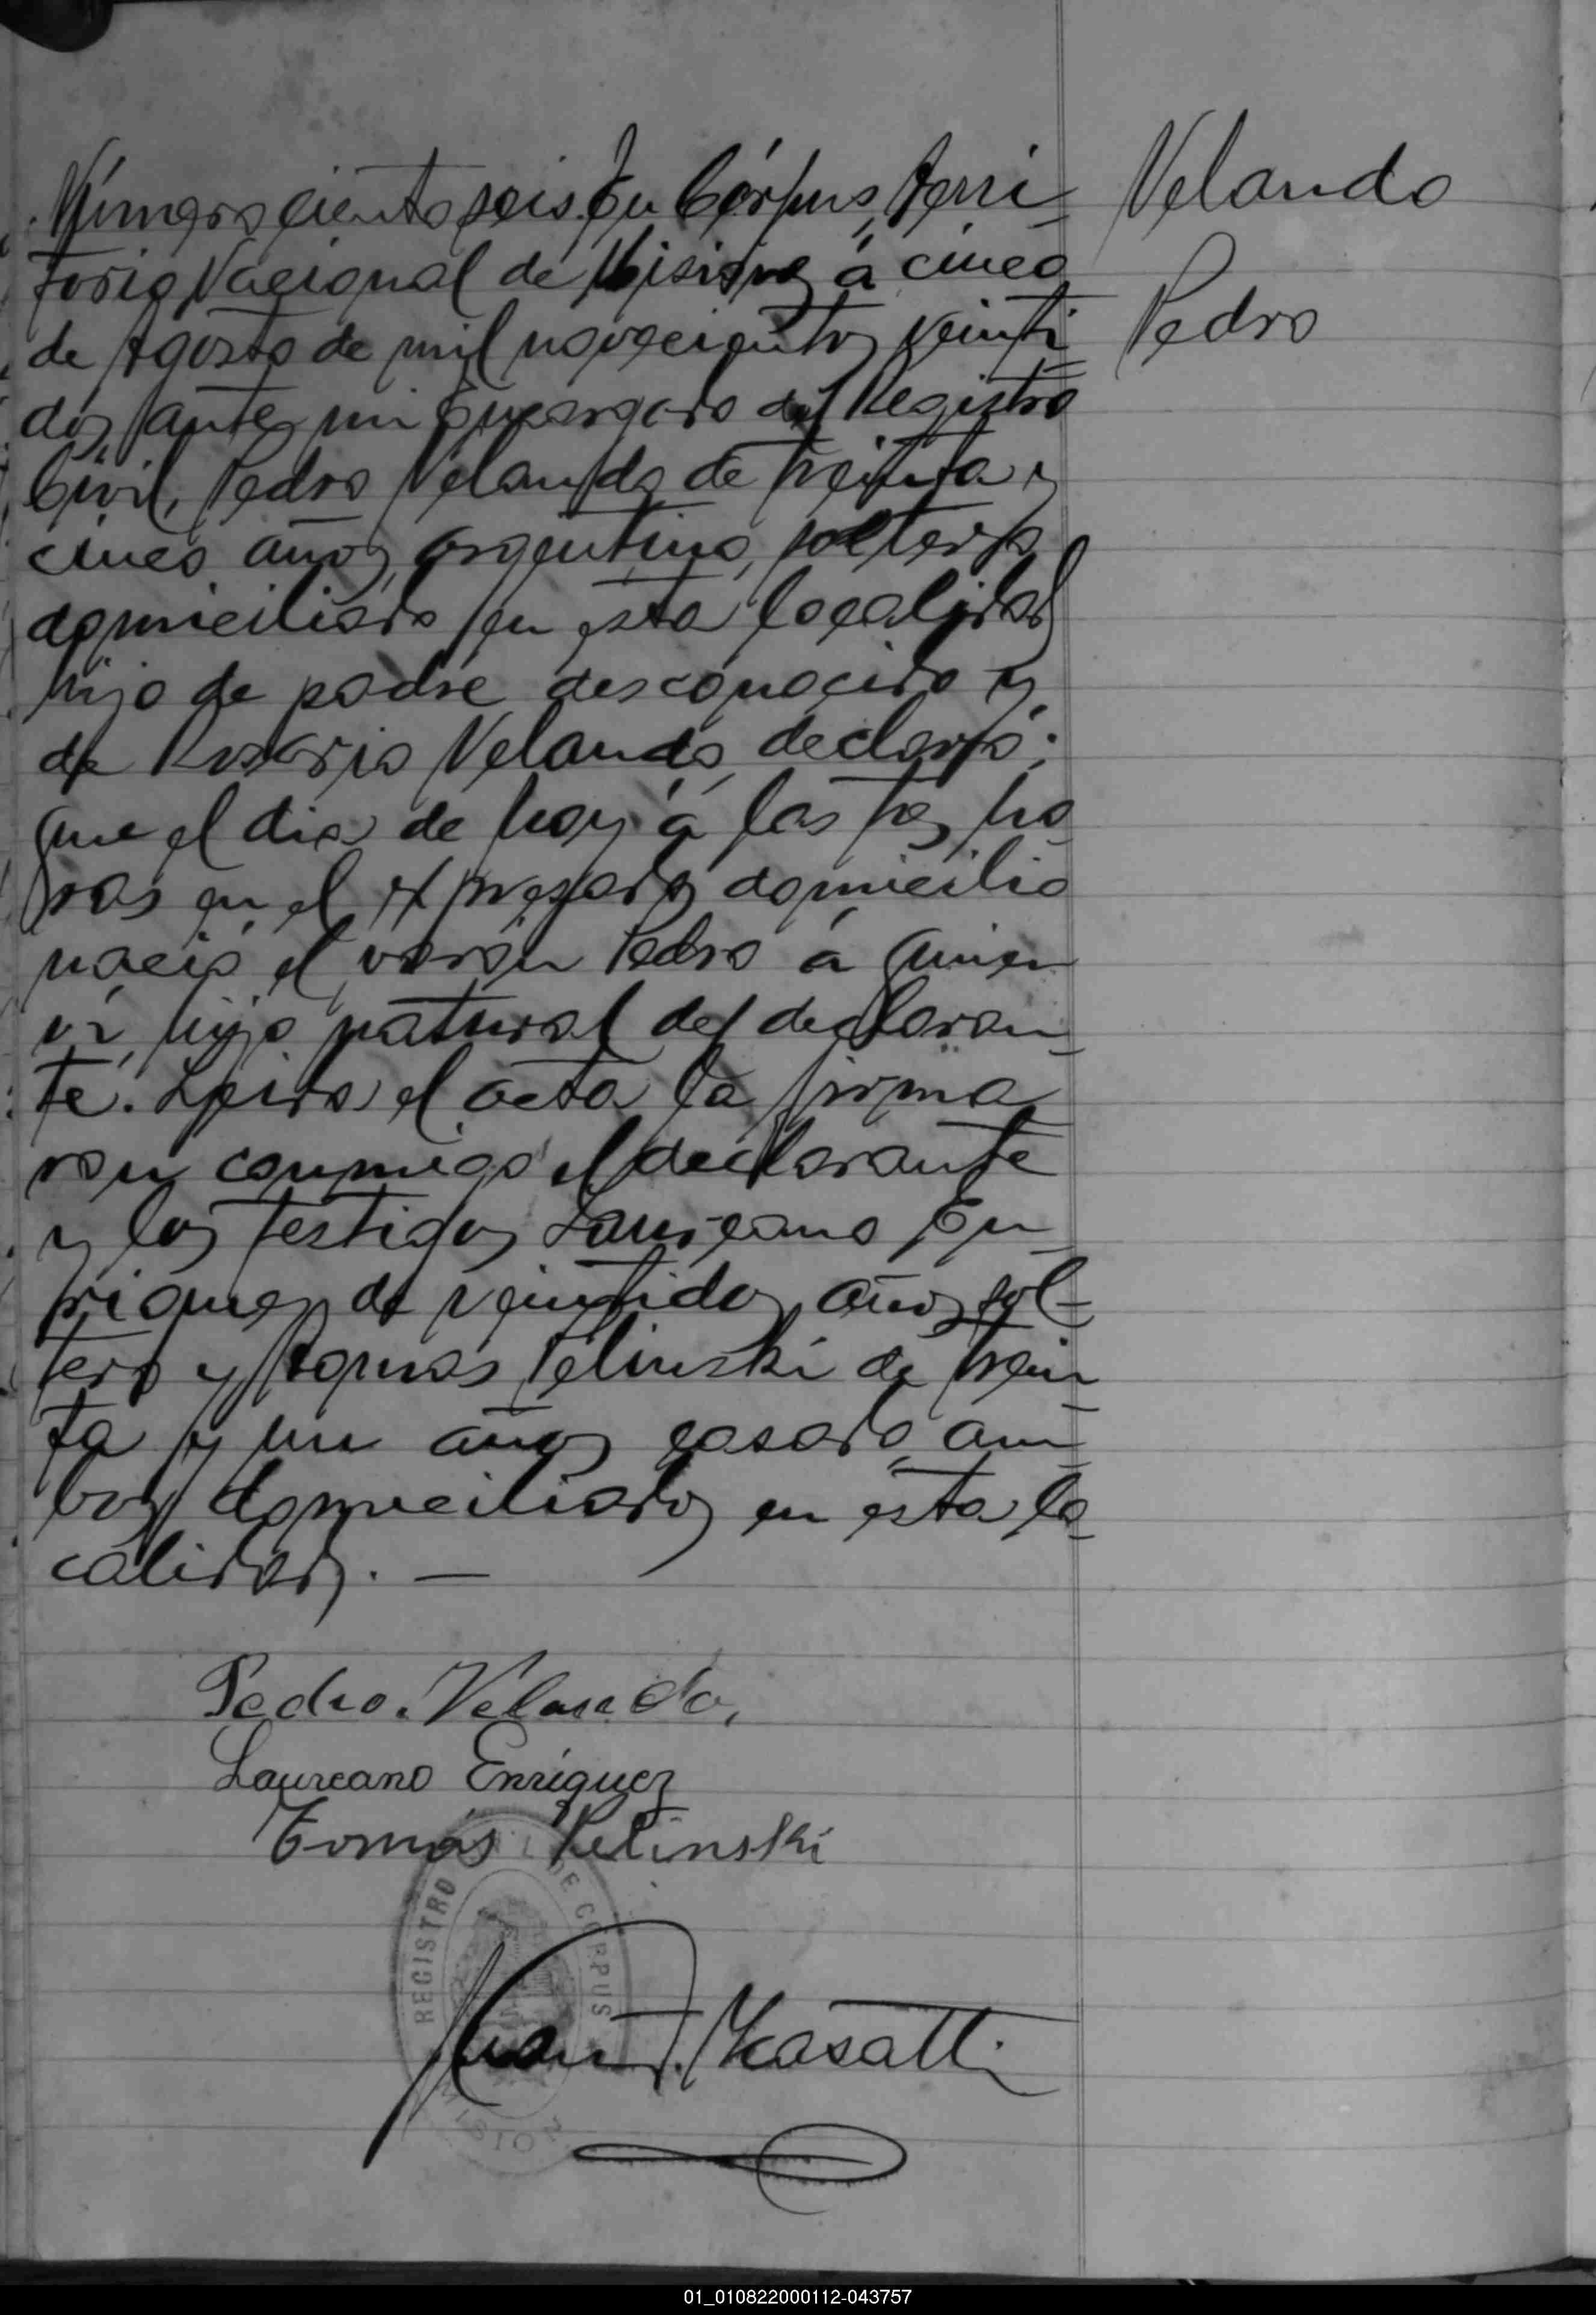 Número ciento seis. En Córpus, Terri-
torio Nacional de Misiones, á cinco
de Agosto de mil novecientos veinti-
dos, ante mi Encargado del Registro
Civil, Pedro Velando, de treinta y
cinco años, argentino, soltero,
domiciliado en esta localidad
hijo de padre desconocido y
de Rosario Velando, declaró:
que el dia de hoy á las ho
ras en el expresado domicilio
nació el varón Pedro á quien
ví, hijo natural del declaran-
te. Leida el acta la firma
ron conmigo el declarante
y los testigos Laureano En
riquez, de veintidos años, sol-
tero y Tomás Pelinski de trein-
ta y un años casado, am
bos domiciliados en esta lo-
calidad. —
Pedro. Velando,
Laureano Enríquez
Tomás Pelinski
REGISTRO DE CORPUS
Juan J. Masatti
Velando
Pedro
01_010822000112-043757